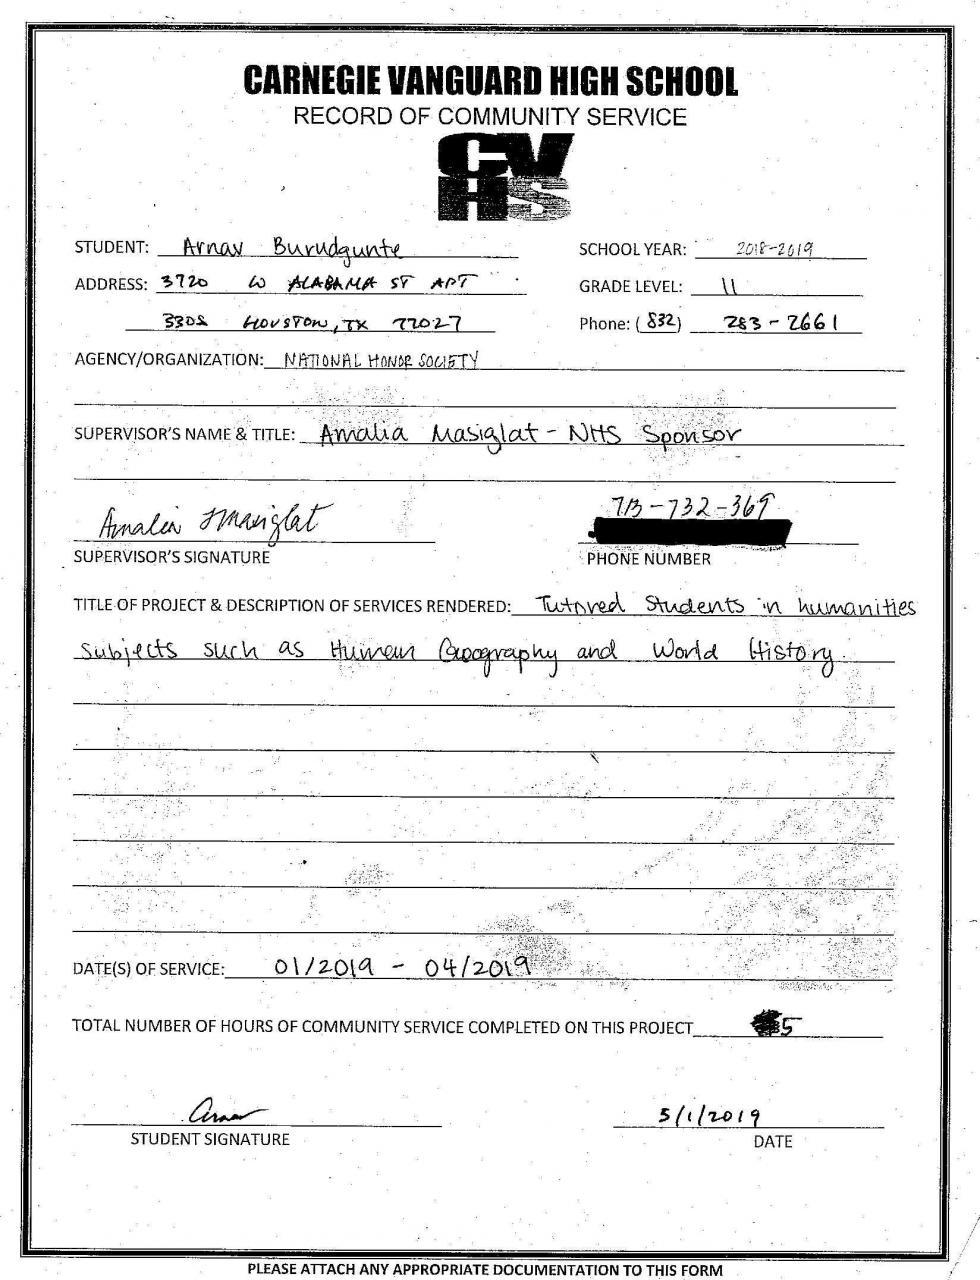 CARNEGIE VANGUARD HIGH SCHOOL
RECORD OF COMMUNITY SERVICE
CV
HS
STUDENT: Arnav Burudgunte SCHOOL YEAR: 2018-2019
ADDRESS: 3720 W ALABAMA ST APT GRADE LEVEL: 11
3308 HOUSTON, TX 77027 Phone: (832) 283-2661
AGENCY/ORGANIZATION: NATIONAL HONOR SOCIETY
SUPERVISOR'S NAME & TITLE: Amalia Masiglat - NHS Sponsor
Amalia Masiglat 713-732-369
SUPERVISOR'S SIGNATURE PHONE NUMBER
TITLE OF PROJECT & DESCRIPTION OF SERVICES RENDERED: Tutored Students in humanities
subjects such as Human Geography and World History.
DATE(S) OF SERVICE: 01/2019 - 04/2019
TOTAL NUMBER OF HOURS OF COMMUNITY SERVICE COMPLETED ON THIS PROJECT 5
Arnav 5/1/2019
STUDENT SIGNATURE DATE
PLEASE ATTACH ANY APPROPRIATE DOCUMENTATION TO THIS FORM